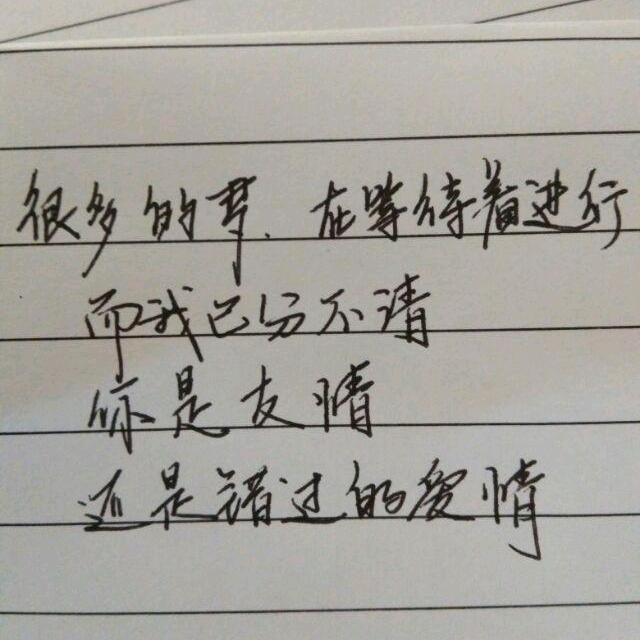 很多的事、在等待着进行
而我已分不清
你是友情
还是错过的爱情